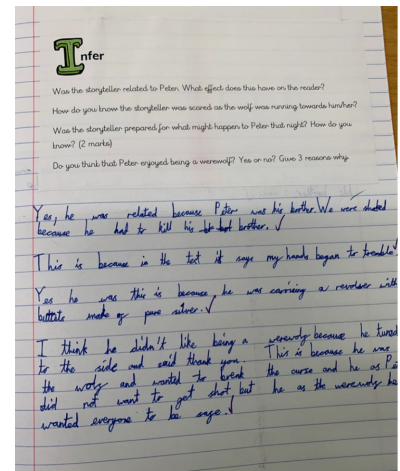 Infer
Was the storyteller related to Peter. What effect does this have on the reader?
How do you know the storyteller was scared as the wolf was running towards him/her?
Was the storyteller prepared for what might happen to Peter that night? How do you
know? (2 marks)
Do you think that Peter enjoyed being a werewolf? Yes or no? Give 3 reasons why.
Yes, he was related because Peter was his brother. We were shoked
because he had to kill his brother.
This is because in the text it says my hands began to tremble
Yes he was this is because, he was carring a revolser with
made of pure silver.
I think he didn't like being a werewolf because he turned
to the side and said thank you. This is because he was
the wolf and wanted to break the curse and he as Pe
did not want to get shot but he as the werewolf he
wanted everyone to be safe.